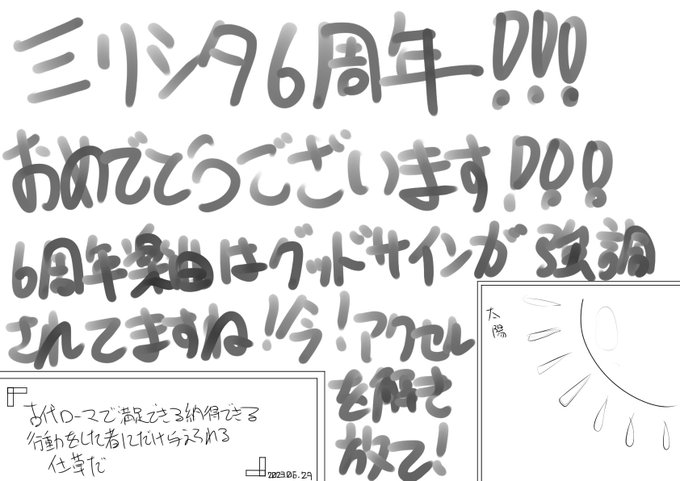 ミリシタ6周年!!!
おめでとうございます!!!
6周年楽曲はグッドサインが強調
されてますね!今!アクセル
を解き
放て!
太陽
古代ローマで満足できる納得できる
行動をした者にだけ与えられる
仕草だ
2023.06.29